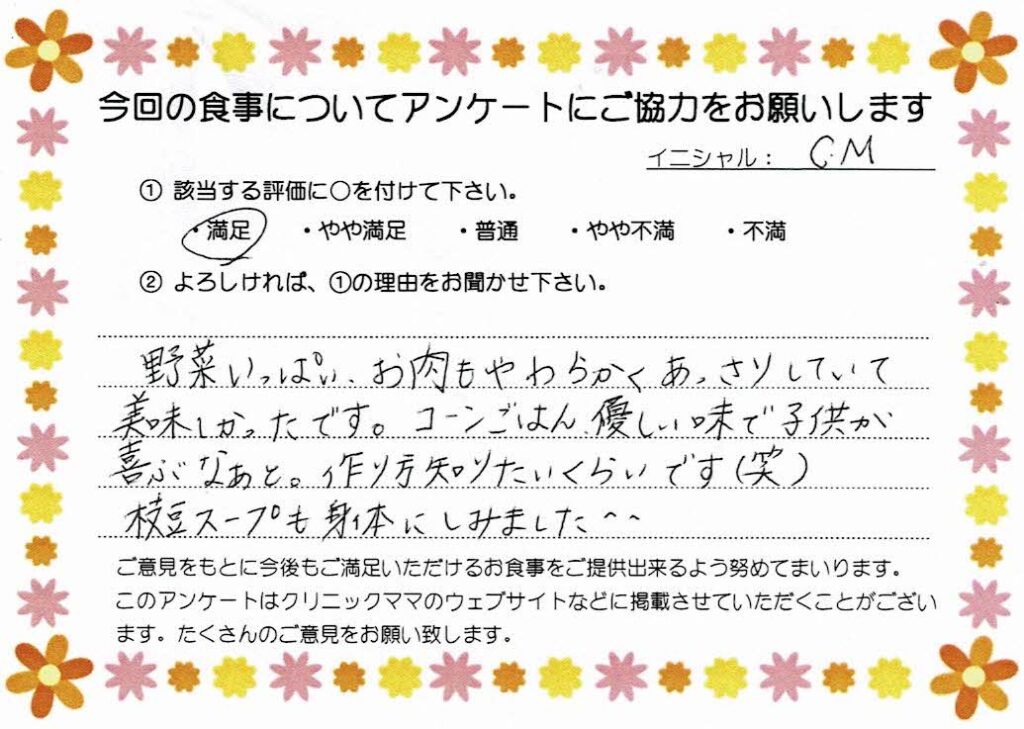 今回の食事についてアンケートにご協力をお願いします
イニシャル： C.M
① 該当する評価に○を付けて下さい。
・満足 ・やや満足 ・普通 ・やや不満 ・不満
② よろしければ、①の理由をお聞かせ下さい。
野菜いっぱい、お肉もやわらかくあっさりしていて
美味しかったです。コーンごはん、優しい味で子供が
喜ぶなぁと。作り方知りたいくらいです(笑)
枝豆スープも身体にしみました^^
ご意見をもとに今後もご満足いただけるお食事をご提供出来るよう努めてまいります。
このアンケートはクリニックママのウェブサイトなどに掲載させていただくことがござい
ます。たくさんのご意見をお願い致します。